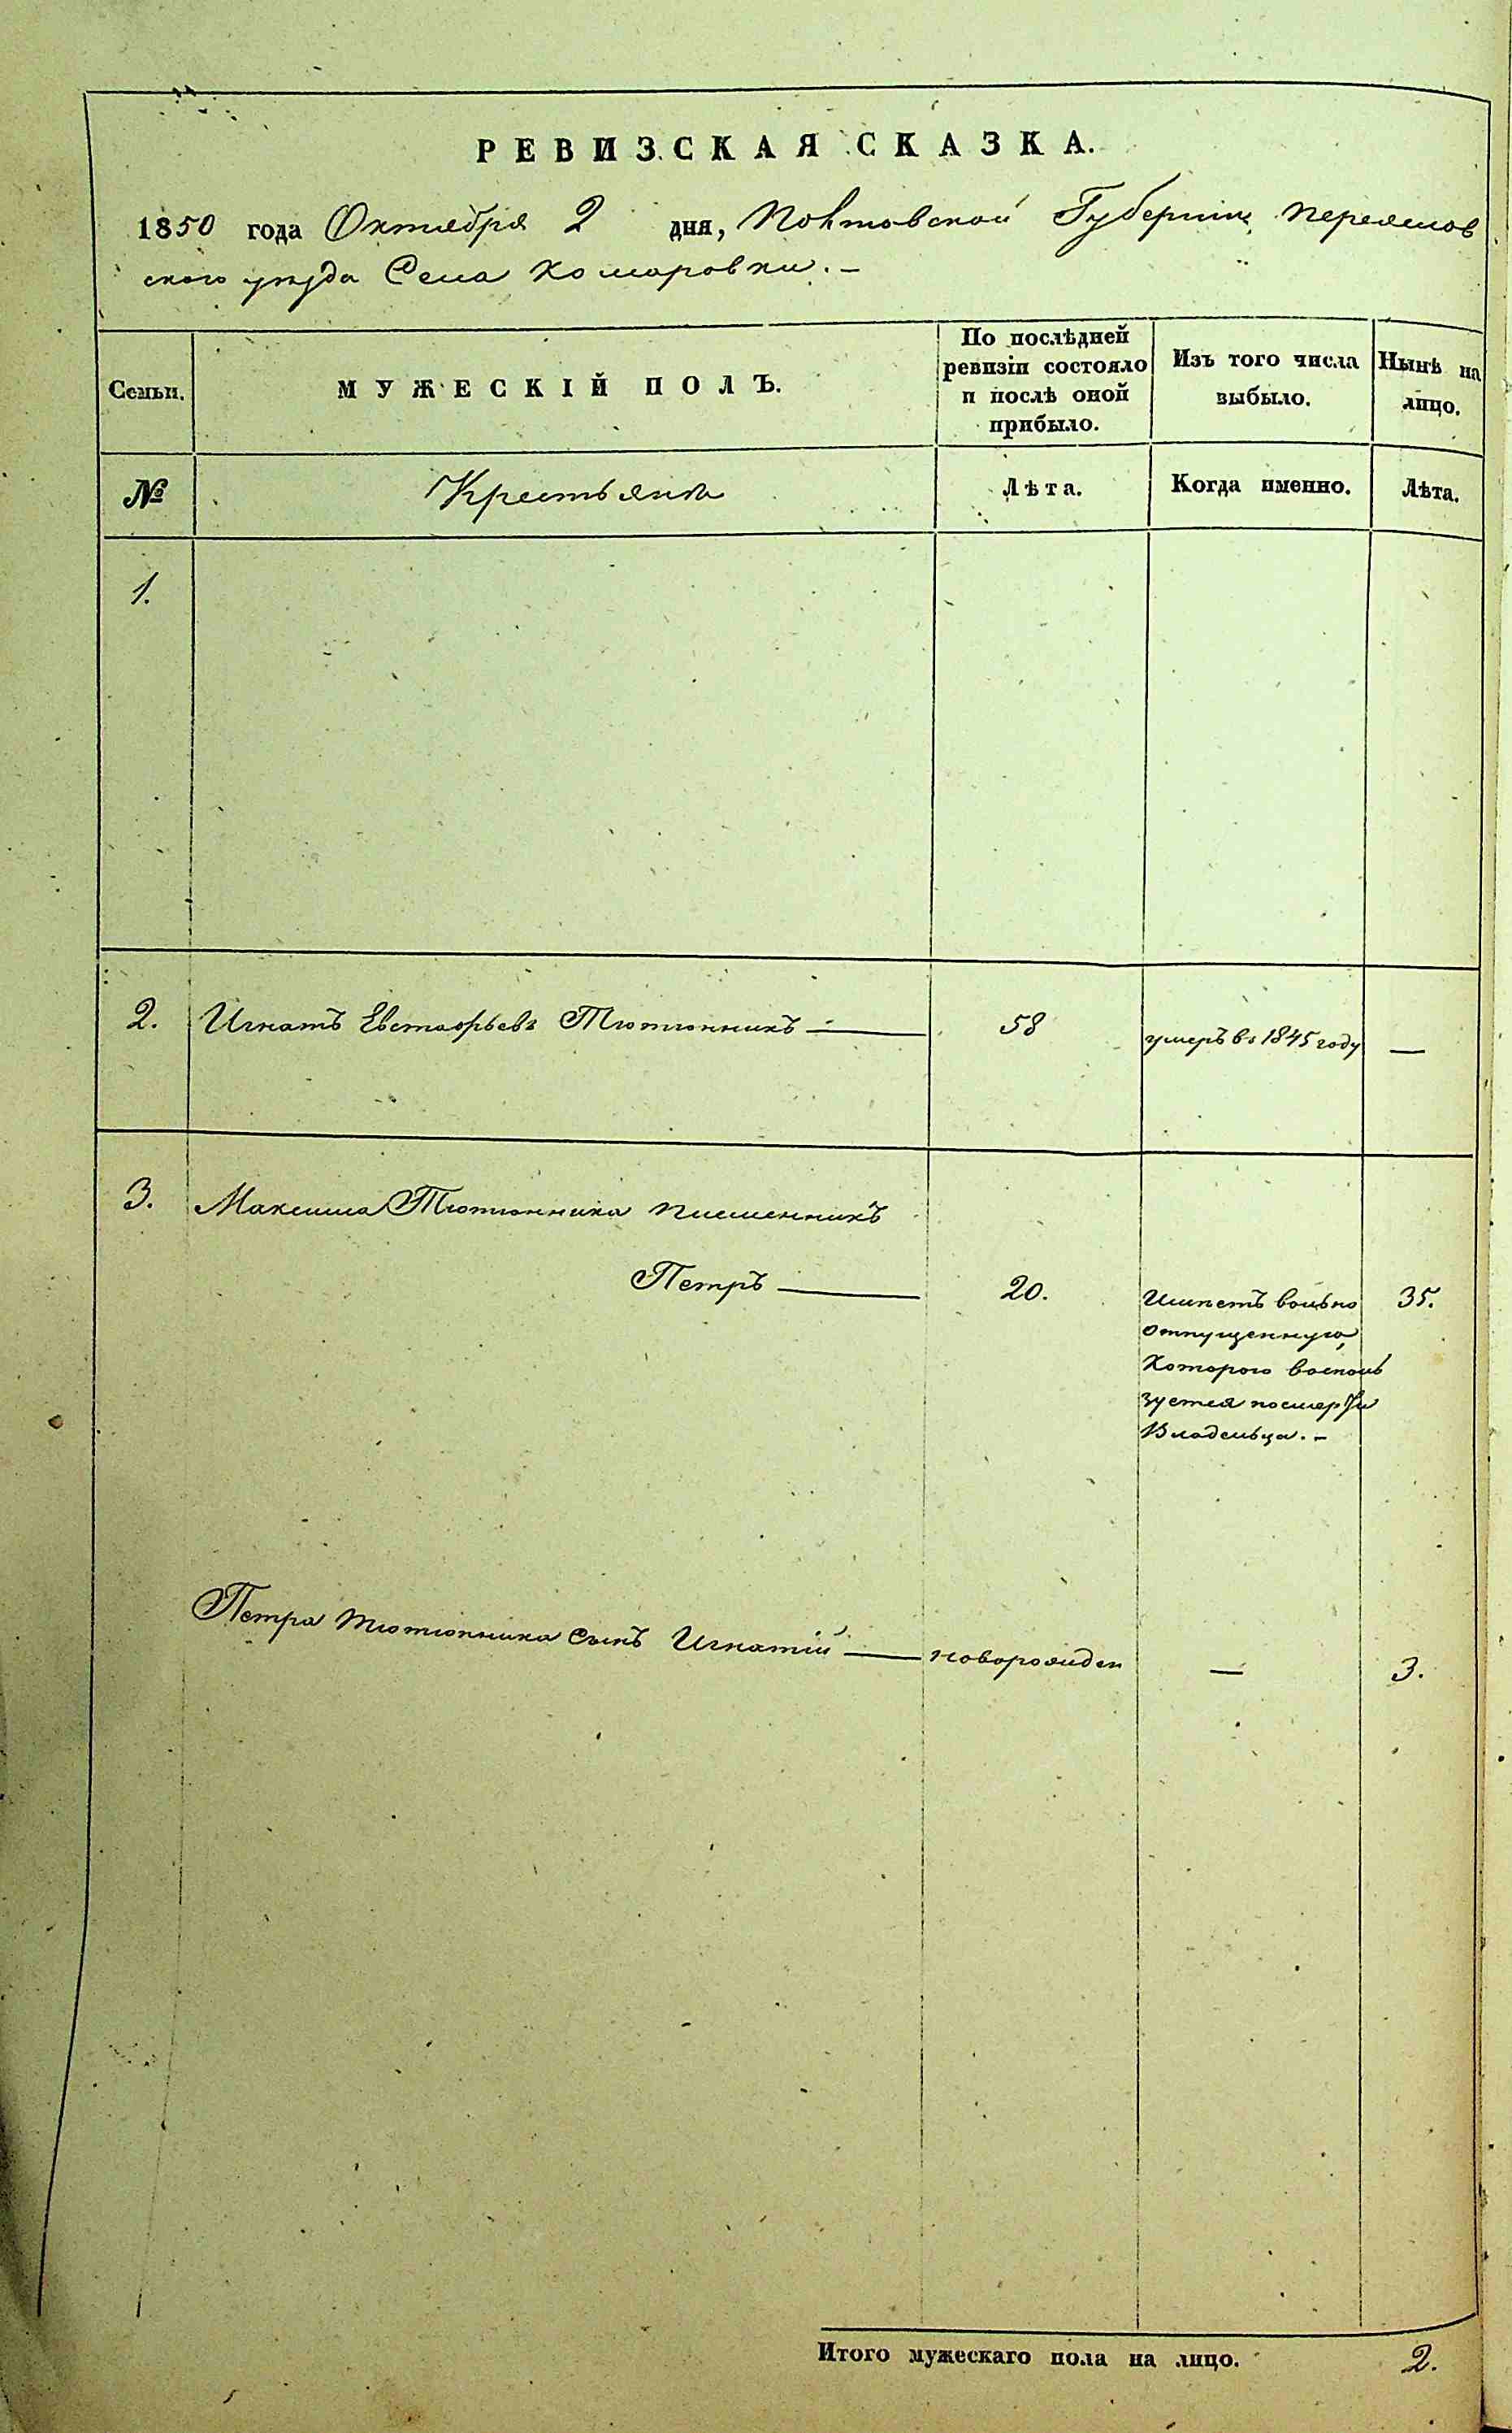 РЕВИЗСКАЯ СКАЗКА.
1850 года Октября 2 дня, Полтавской Губерніи Переяслов
ского уезда Села Комаровки. –
Семьи.
МУЖЕСКІЙ ПОЛЪ.
По послѣдней ревизіи состояло и послѣ оной прибыло.
Изъ того числа выбыло.
Нынѣ на лицо.
№
Крестьяне
Лѣта.
Когда именно.
Лѣта.
1.
2. Игнатъ Евстафьевъ Тютюнникъ — 58 умеръ въ 1845 году —
3. Максима Тютюнника племенникъ
Петръ — 20. Имѣетъ вольно 35.
отпущенную,
которого восполь
зуется посмерти
Владельца. –
Петра Тютюнника сынъ Игнатій — новорожден — 3.
Итого мужескаго пола на лицо. 2.